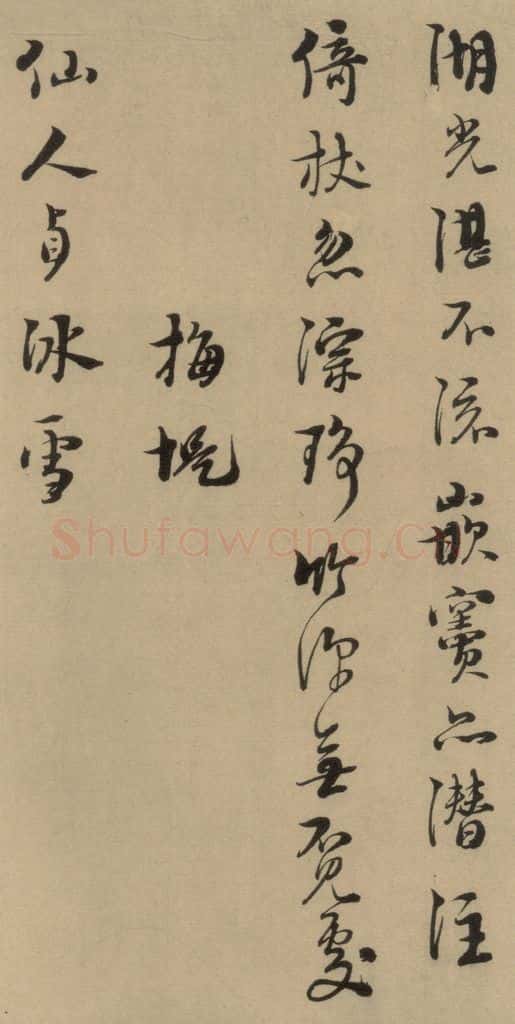 湖光湛不流嵌竇亦潛注
倚杖忽淙琤竹深無覔處
梅堤
仙人貞冰雪
Shufawang.cn